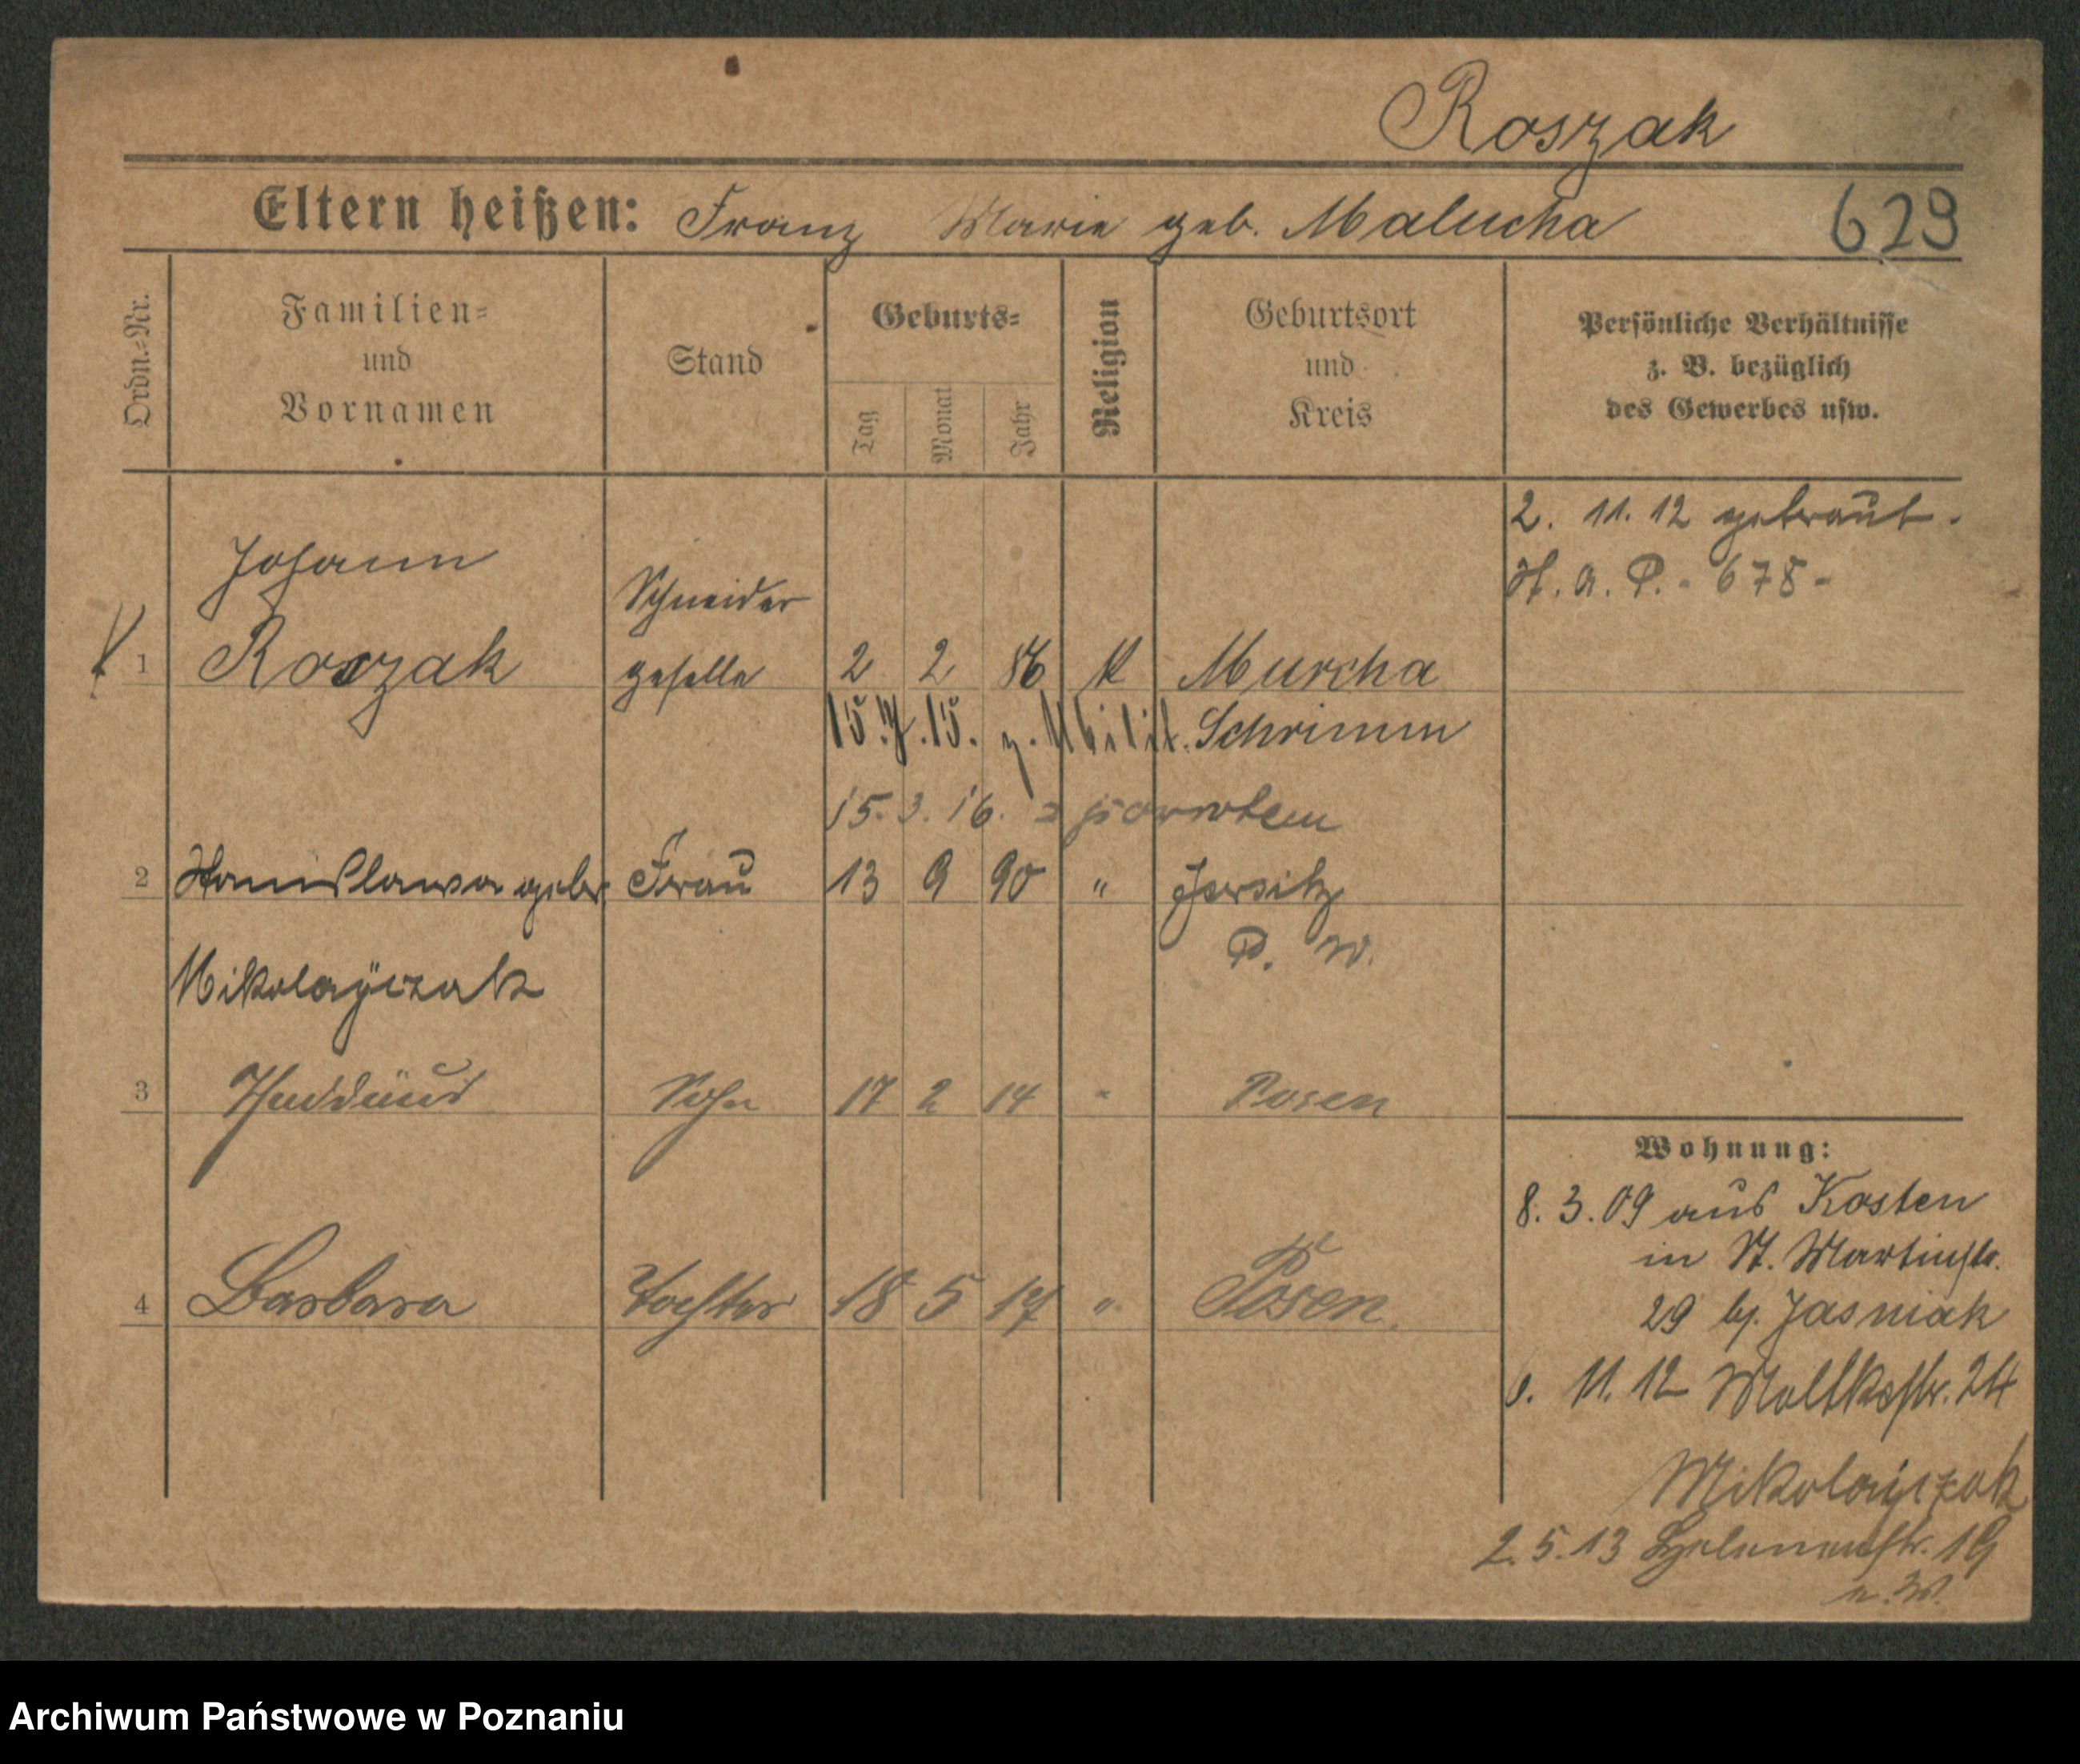 Roszak
Eltern heißen: Franz Marie geb. Malucha 629
Ordn.-Nr.
Familien-
und
Vornamen
Stand
Geburts-
Tag
Monat
Jahr
Religion
Geburtsort
und
Kreis
Persönliche Verhältnisse
z. B. bezüglich
des Gewerbes usw.
2. 11. 12 getraut.
St. A. P. - 678 -
Johann
Schneider
1 Roszak geselle 2 2 86 K Murcha
15.7.15. z. Milit. Schrimm
15. 3. 16.
2 Stanislawa geb. Frau 13 9 90 " Jersitz
P. W.
Mikolayczak
3 Thaddäus Sohn 17 2 14 " Posen
Wohnung:
8. 3. 09 aus Kosten
in St. Martinstr.
29 b/. Jasniak
4 Barbara Tochter 18 5 17 " Posen.
11. 12 Moltkestr. 24
Mikolayczak
2. 5. 13 Helenenstr. 19
Archiwum Państwowe w Poznaniu